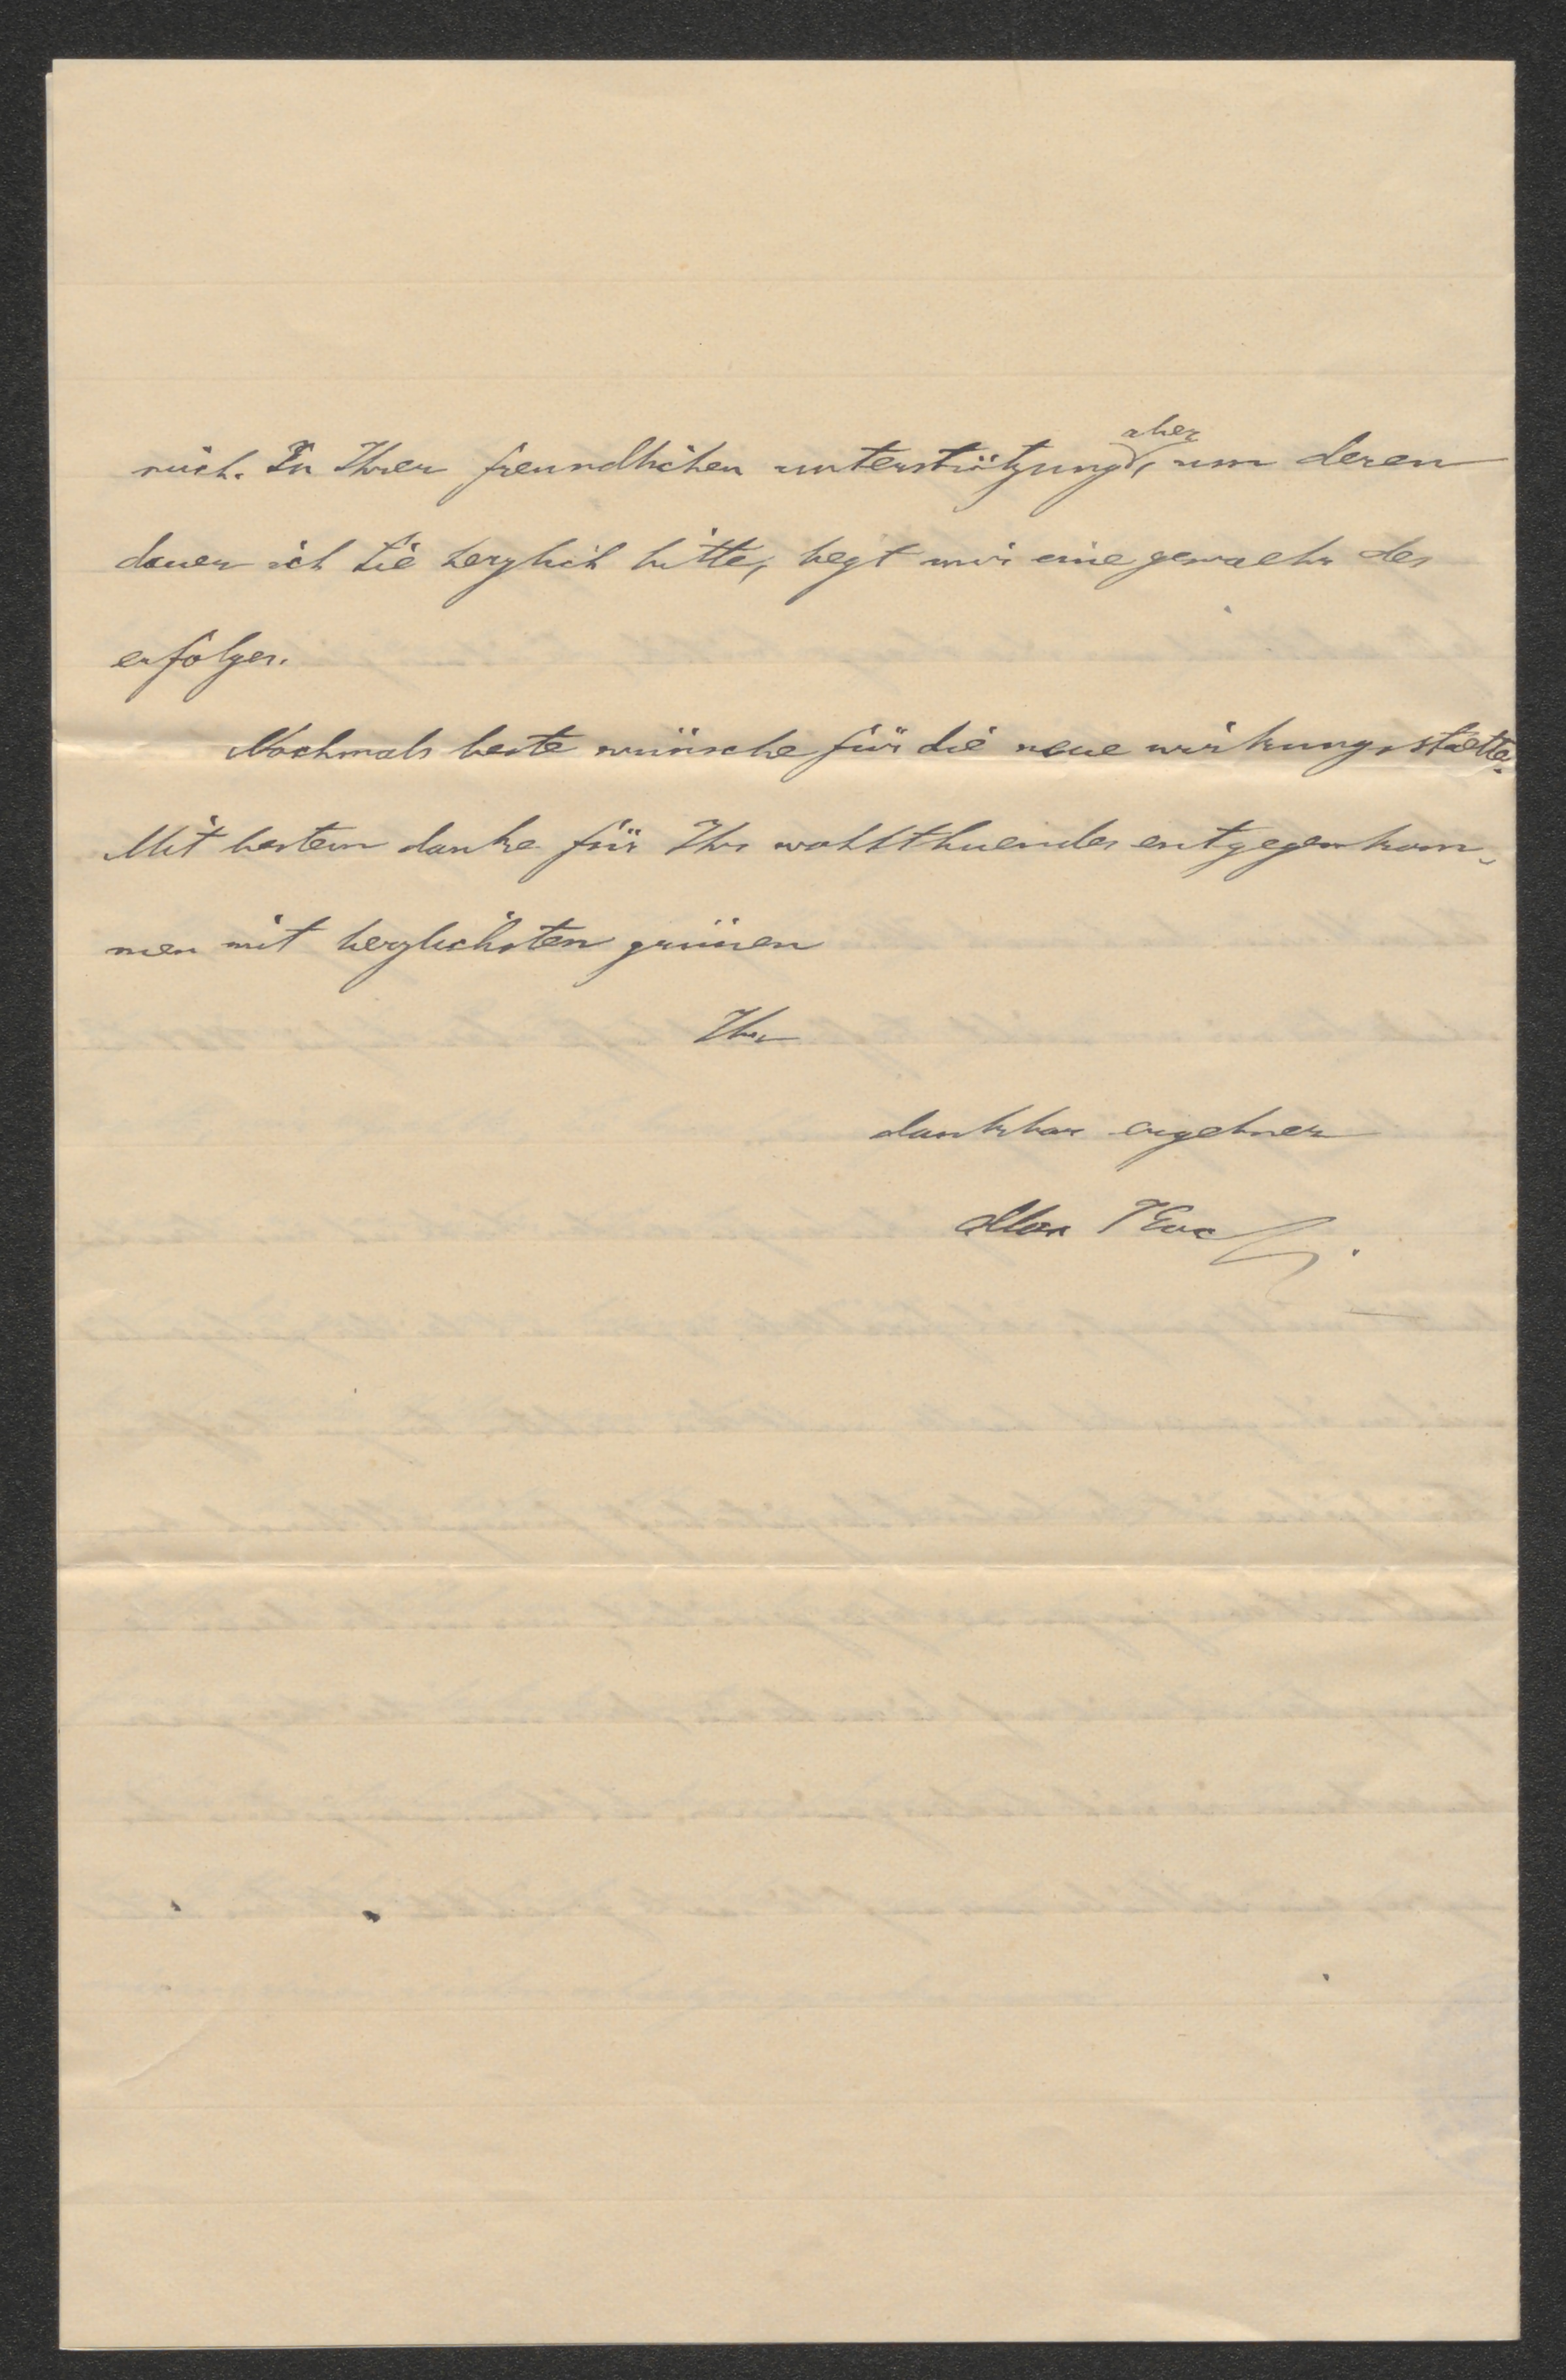 mich. In Ihrer freundlichen unterstützung aber, um deren
dauer ich Sie herzlich bitte, liegt mir eine gewaehr des
erfolges.
Nochmals beste wünsche für die neue wirkungsstaette.
Mit bestem danke für Ihr wohltthuendes entgegenkom-
men mit herzlichsten grüssen
Ihr
dankbar ergebner
Max